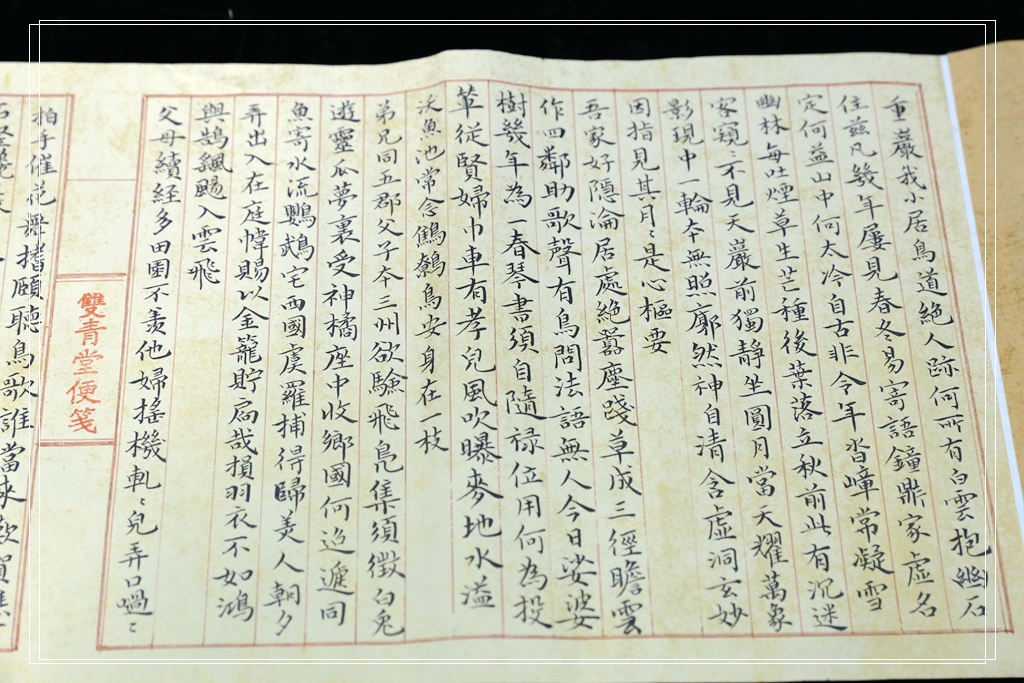 重巖我小居鳥道絶人跡何所有白雲抱幽石
住茲凡幾年屢見春冬易寄語鐘鼎家虛名
定何益山中何太冷自古非今年沓嶂常凝雪
幽林每吐煙草生芒種後葉落立秋前此有沉迷
客窺〻不見天巖前獨靜坐圓月當天耀萬象
影現中一輪本無照廓然神自清含虛洞玄妙
因指見其月〻是心樞要
吾家好隱淪居處絕囂塵踐草成三徑瞻雲
作四鄰助歌聲有鳥問法語無人今日娑婆
樹幾年為一春琴書須自隨祿位用何為投
輦從賢婦巾車有孝兒風吹曝麥地水溢
沃魚池常念鷦鷯鳥安身在一枝
弟兄同五郡父子本三州欲驗飛鳧集須徵白兔
遊靈瓜夢裏受神橘座中收鄉國何迢遞同
魚寄水流鸚鵡宅西國虞羅捕得歸美人朝夕
弄出入在庭幃賜以金籠貯扃哉損羽衣不如鴻
與鵠飖颺入雲飛
父母續經多田園不羨他婦搖機軋〻兒弄口喎〻
雙青堂便箋
拍手催花舞搘頤聽鳥歌誰當來歎賀樵